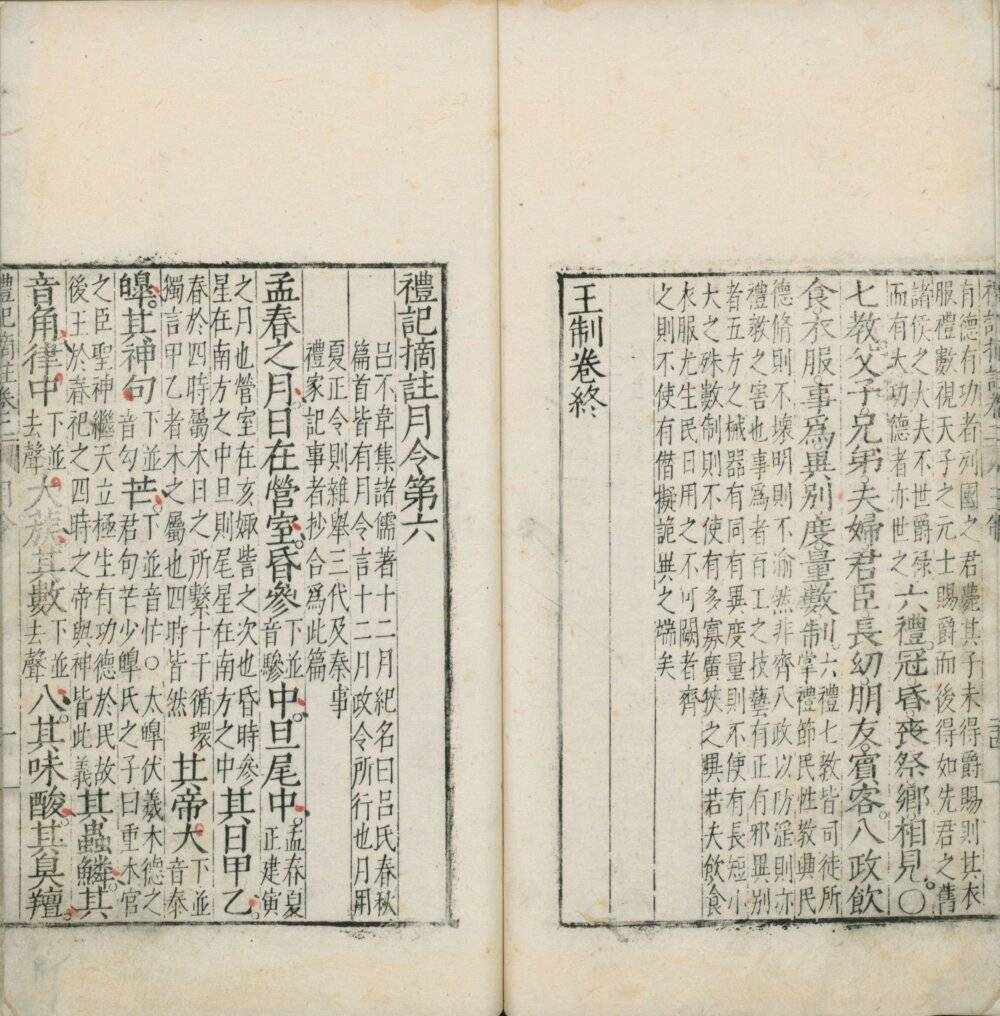 有德有功者列國之君薨其子未得爵賜則其衣
服禮數視天子之元士賜爵而後得如先君之舊
諸侯之大夫不世爵祿
而有大功德者亦世之
六禮冠昏喪祭鄉相見○
七教父子兄弟夫婦君臣長幼朋友賓客八政飲
食衣服事爲異別度量數制
六禮七教皆司徒所
掌禮節民性教興民
德脩則不壞明則不渝然非齊八政以防淫則亦
禮教之害也事爲者百工之技藝有正有邪異別
者五方之械器有同有異度量則不使有長短小
大之殊數制則不使有多寡廣狹之異若夫飲食
衣服尤生民日用之不可闕者齊
之則不使有僭擬詭異之端矣
王制卷終
禮記摘註月令第六
呂不韋集諸儒著十二月紀名曰呂氏春秋
篇首皆有月令言十二月政令所行也月用
夏正令則雜舉三代及秦事
禮家記事者抄合爲此篇
孟春之月日在營室昏參下並音驂中旦尾中孟春夏正建寅
之月也營室在亥娵訾之次也昏時參
星在南方之中旦則尾星在南方之中
其日甲乙
春於四時屬木日之所繫十干循環
獨言甲乙者木之屬也四時皆然
其帝大下並音泰
皥其神句下並音勾芒下並音忙○太皥伏羲木德之
君句芒少皥氏之子曰重木官
之臣聖神繼天立極生有功德於民故
後王於春祀之四時之帝與神皆此義
其蟲鱗其
音角律中下並去聲大蔟其數下並去聲八其味酸其臭羶